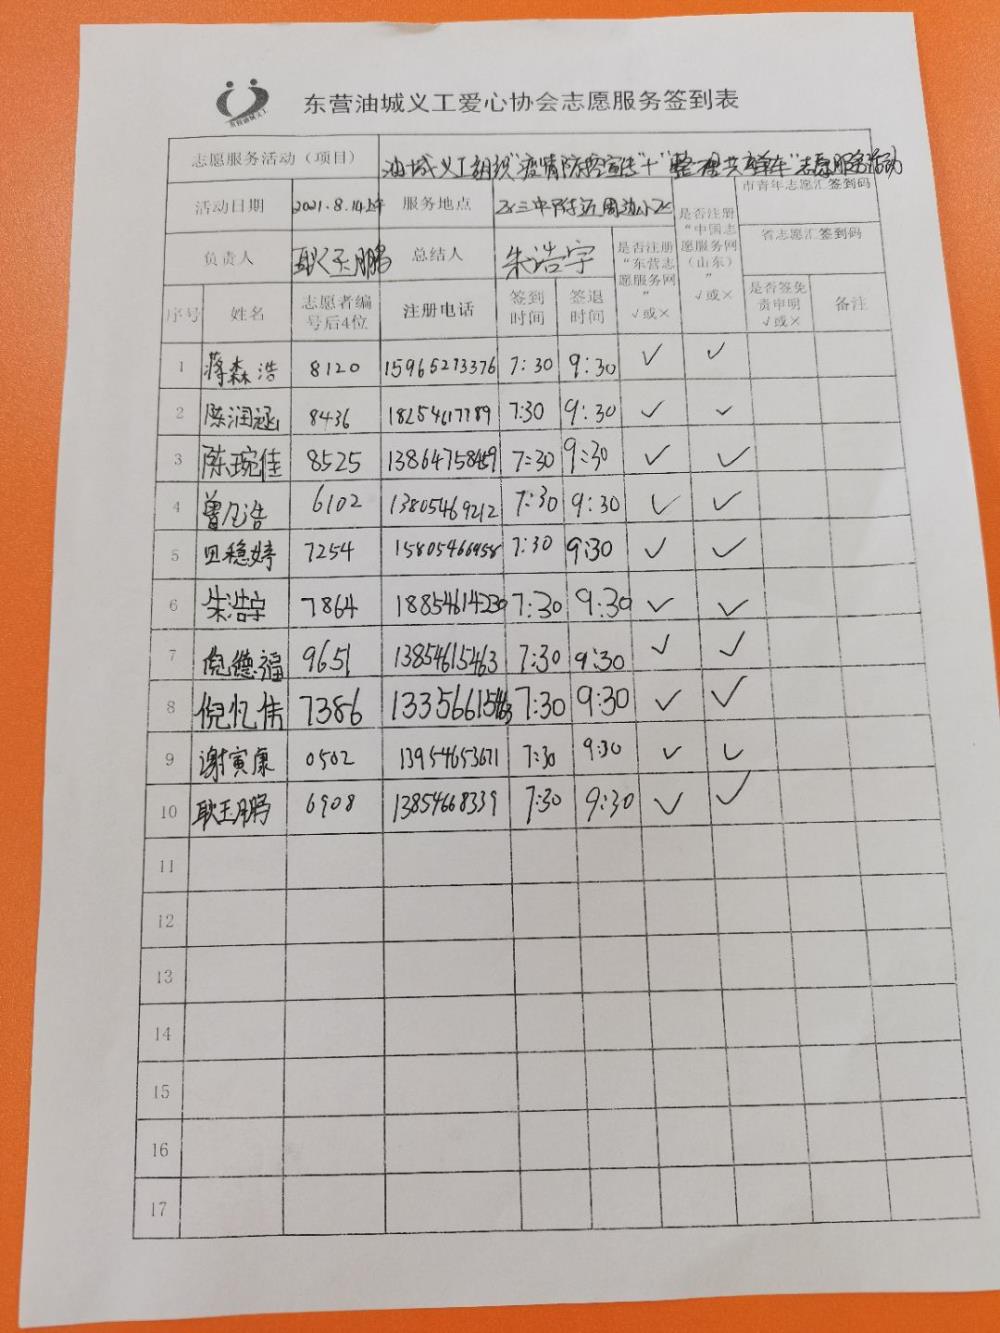 东营油城义工爱心协会志愿服务签到表
东营油城义工
志愿服务活动（项目） 油城义工组织"疫情防控宣传"+"整理共享单车"志愿服务活动
活动日期 2021.8.14上午 服务地点 三中附近周边小区 是否注册"中国志愿服务网（山东）" √或× 市青年志愿汇签到码
省志愿汇签到码
负责人 耿玉鹏 总结人 朱浩宇 是否注册"东营志愿服务网" √或×
序号 姓名 志愿者编号后4位 注册电话 签到时间 签退时间 是否签免责申明 √或× 备注
1 蒋森浩 8120 15965273376 7:30 9:30 √ √
2 陈润涵 8436 18254617789 7:30 9:30 √ √
3 陈琬佳 8525 1386475 7:30 9:30 √ √
4 曾凡浩 6102 13805469212 7:30 9:30 √ √
5 田稳婷 7254 15805466958 7:30 9:30 √ √
6 朱浩宇 7864 18854614230 7:30 9:30 √ √
7 德福 9651 13854615463 7:30 9:30 √ √
8 倪忆伟 7386 13356615463 7:30 9:30 √ √
9 谢寅康 0502 13954653671 7:30 9:30 √ √
10 耿玉鹏 6908 13854668339 7:30 9:30 √ √
11
12
13
14
15
16
17